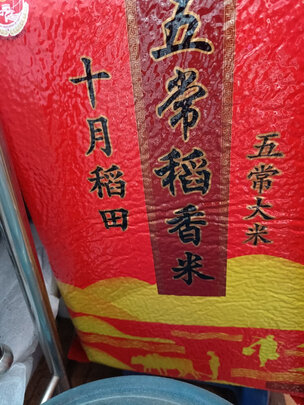 五常稻香米
十月稻田
五常大米